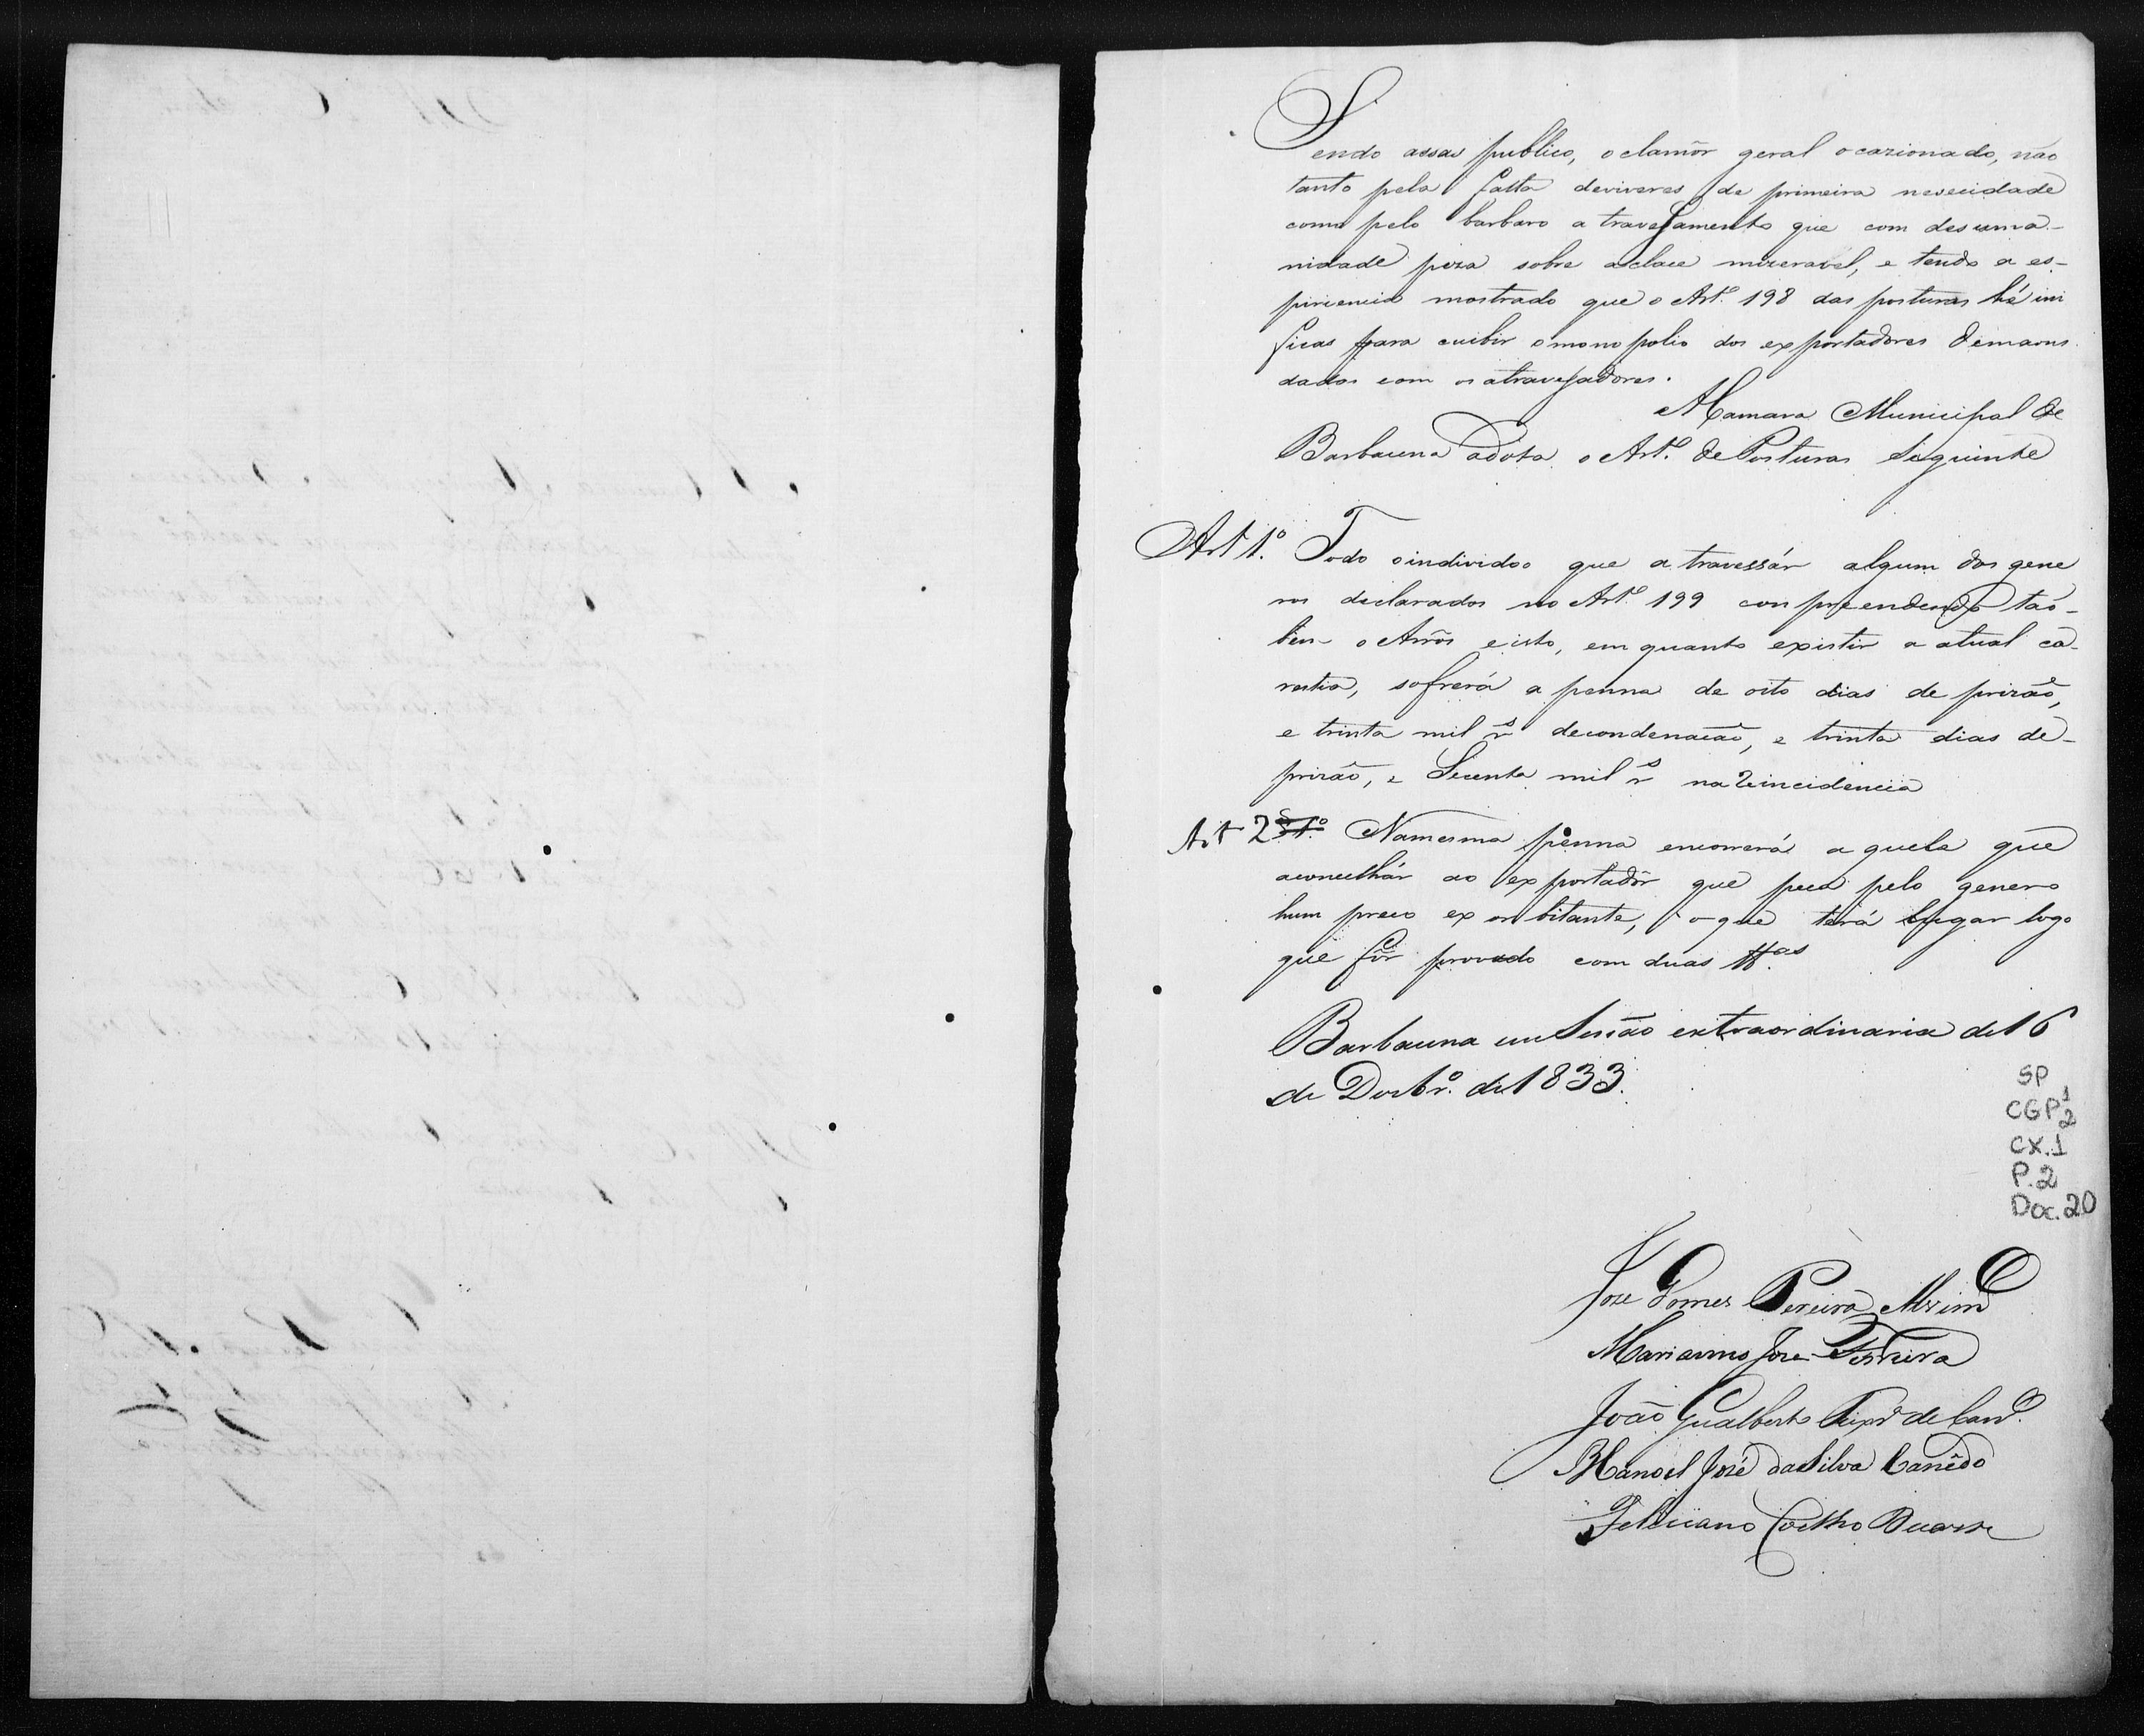 Sendo assas publico, o clamôr geral ocazionado, não
tanto pela falta deviveres de primeira nececidade
como pelo barbaro atravesamento que com desuma-
nidade peza sobre aclace mizeravel, e tendo a es-
piriencia mostrado que o Art.º 198 das posturas hé ini
ficas para cuibir omonopolio dos exportadores demaons
dadas com os atravesadores.
A Camara Municipal de
Barbacena adota o Art.º de Posturas Seguinte
Art 1.º Todo oindividoo que atravessár algum dos gene
ros declarados no Art.º 199 conpreendendo tão-
bem o Arrôs eisto, em quanto existir a atual ca-
restia, sofrerá a penna de oito dias de prizão,
e trinta mil rs decondenacão, e trinta dias de-
prizão, e Secenta mil rs na Reincidencia
Art 2 § 1.º Namesma penna encorrerá aquele que
aconcelhár ao exportadôr que peca pelo genero
hum preco exorbitante, oque terá lugar logo
que fôr provado com duas ttas
Barbacena em Sesão extraordinaria de 16
de Dezbr.º de 1833.
SP
CGP 1
2
CX.1
P.2
Doc.20
Joze Gomes Pereira
Marianno Joze Ferreira
João Gualberto Teixr.ª de Carv.º
Manoel José da Silva Canêdo
Feliciano Coelho Duarte